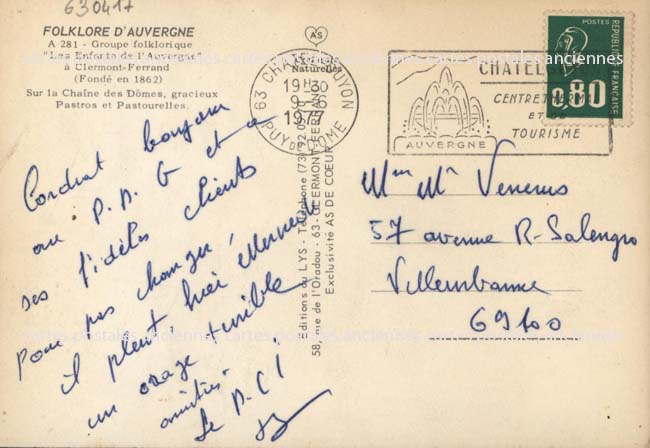 630417
FOLKLORE D'AUVERGNE
A 281 - Groupe folklorique
"Les Enfants de l'Auvergne"
à Clermont-Ferrand
(Fondé en 1862)
Sur la Chaîne des Dômes, gracieux
Pastros et Pastourelles.
Cordial bonjour
au P.M.G et a
ses fidèles clients
Pour pas changer,
il pleut, hier
un orage terrible
amitiés
Le
AS
Naturelles
63 CHATELGUYON
19 H 30
9-6
1977
PUY DE DOME
CHATELGUYON
CENTRE THERMAL
ET DE
TOURISME
AUVERGNE
POSTES
REPUBLIQUE FRANÇAISE
0,80
Editions du LYS - Téléphone (73) 92
58, rue de l'Oradou - 63-CLERMONT-FERRAND
Exclusivité AS DE COEUR
Mme Mr
57 avenue R. Salengro
Villeurbanne
69100
cartes-postales-anciennes